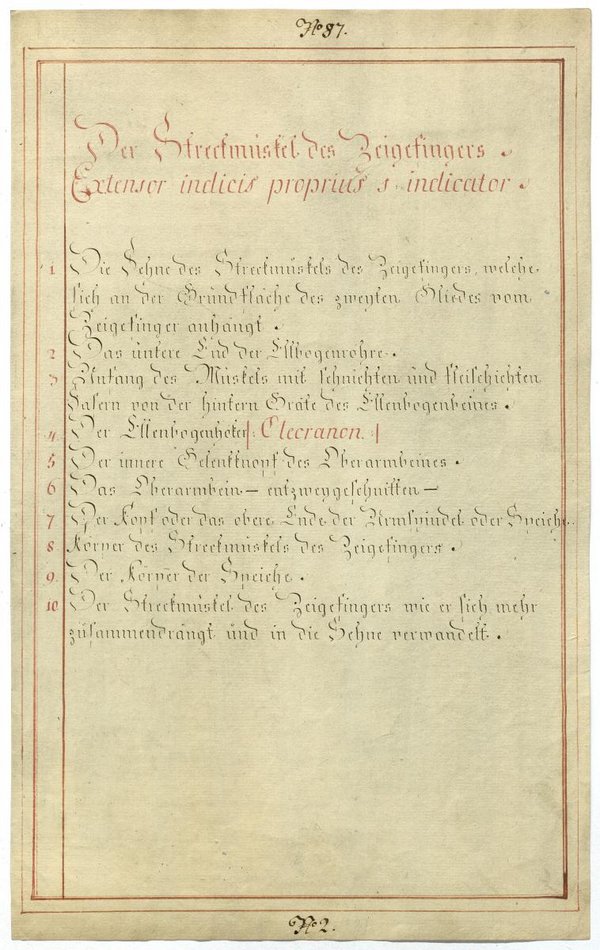 No 87.
Der Streckmuskel des Zeigefingers.
Extensor indicis proprius s. indicator.
1 Die Sehne des Streckmüskels des Zeigefingers, welche
sich an der Gründfläche des zweyten Gliedes vom
Zeigefinger anhängt.
2 Das üntere End der Ellbogenröhre.
3 Anfang des Müskels mit sehnichten und fleischichten
Fasern von der hintern Gräte des Ellenbogenbeines.
4. Der Ellenbogenhöker |: Olecranon. :|
5 Der innere Gelenkknopf des Oberarmbeines.
6 Das Oberarmbein — entzweygeschnitten —
7 Der Kopf oder das obere Ende der Armspindel oder Speiche.
8. Körper des Streckmuskels des Zeigefingers.
9. Der Körper der Speiche.
10. Der Streckmüskel des Zeigefingers wie er sich mehr
züsammendrängt und in die Sehne verwandelt.
No 2.